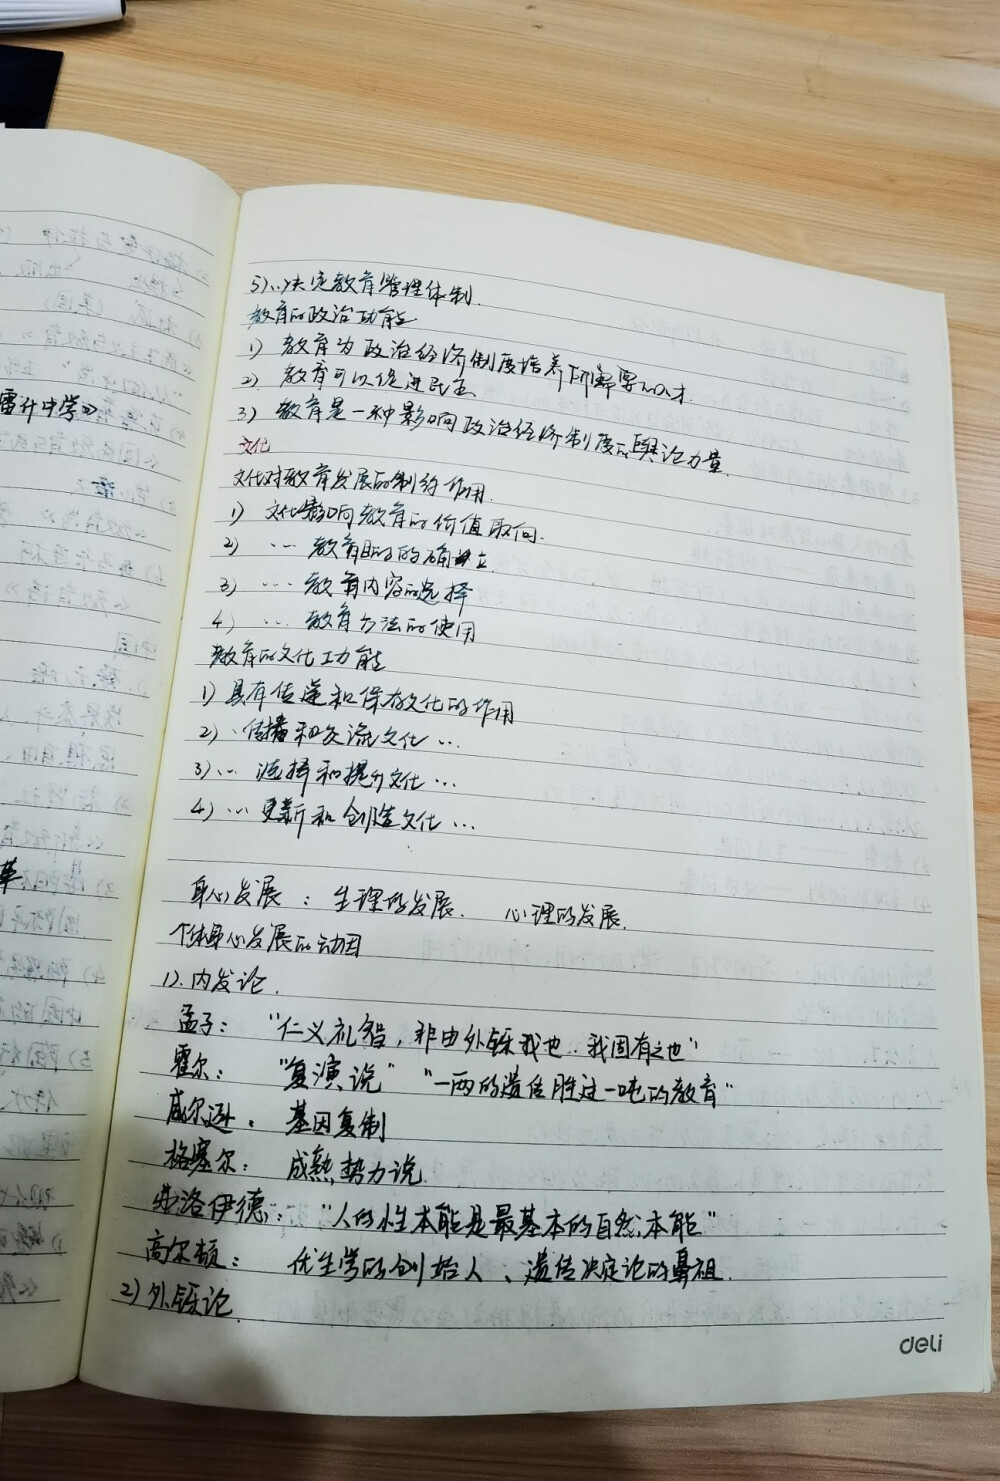 雷升中学》
革
5)…决定教育管理体制.
教育的政治功能
1) 教育为政治经济制度培养所需要的人才.
2) 教育可以促进民主
3) 教育是一种影响政治经济制度的舆论力量.
文化
文化对教育发展的制约作用.
1) 文化影响教育的价值取向.
2) … 教育目的的确立.
3) … 教育内容的选择
4) … 教育方法的使用
教育的文化功能
1) 具有传递和保存文化的作用
2) … 传播和交流文化 …
3) … 选择和提升文化 …
4) … 更新和创造文化 …
身心发展 : 生理的发展. 心理的发展.
个体身心发展的动因
1). 内发论.
孟子: "仁义礼智,非由外铄我也..我固有之也"
霍尔: "复演说" "一两的遗传胜过一吨的教育"
威尔逊: 基因复制
格塞尔: 成熟势力说.
弗洛伊德: "人的性本能是最基本的自然本能"
高尔顿: 优生学的创始人、遗传决定论的鼻祖.
2) 外铄论.
deli